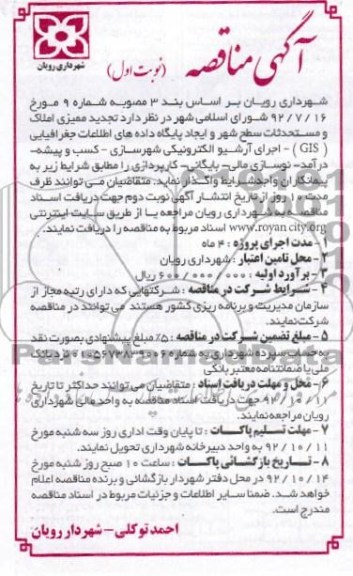 آگهی مناقصه (نوبت اول)
شهرداری رویان
شهرداری رویان بر اساس بند ۳ مصوبه شماره ۹ مورخ
۹۲/۷/۱۶ شورای اسلامی شهر در نظر دارد تجدید ممیزی املاک
و مستحدثات سطح شهر و ایجاد پایگاه داده های اطلاعات جغرافیایی
(GIS) - اجرای آرشیو الکترونیکی شهرسازی - کسب و پیشه-
درآمد- نوسازی مالی- بایگانی- کارپردازی را مطابق شرایط زیر به
پیمانکاران واجدشرایط واگذار نماید. متقاضیان می توانند ظرف
مدت روز از تاریخ انتشار آگهی نوبت دوم جهت دریافت اسناد
مناقصه به شهرداری رویان مراجعه یا از طریق سایت اینترنتی
www.royancity.org اسناد مربوط به مناقصه را دریافت نمایند.
۱- مدت اجرای پروژه : ۴ ماه
۲- محل تامین اعتبار : شهرداری رویان
۳- برآورد اولیه : ۶۰۰/۰۰۰/۰۰۰ ریال
۴- شرایط شرکت در مناقصه : شرکتهایی که دارای رتبه مجاز از
سازمان مدیریت و برنامه ریزی کشور هستند می توانند در مناقصه
شرکت نمایند.
۵- مبلغ تضمین شرکت در مناقصه : ۵٪ مبلغ پیشنهادی بصورت نقد
به حساب سپرده شهرداری به شماره نزد بانک
ملی یا ضمانتنامه معتبر بانکی
۶- محل و مهلت دریافت اسناد : متقاضیان می توانند حداکثر تا تاریخ
جهت دریافت اسناد مناقصه به واحد مالی شهرداری
رویان مراجعه نمایند.
۷- مهلت تسلیم پاکات : تا پایان وقت اداری روز سه شنبه مورخ
۹۲/۱۰/۱۱ به واحد دبیرخانه شهرداری تحویل نمایند.
۸- تاریخ بازگشائی پاکات : ساعت ۱۰ صبح روز شنبه مورخ
۹۲/۱۰/۱۴ در محل دفتر شهردار بازگشائی و برنده مناقصه اعلام
خواهد شد. ضمنا سایر اطلاعات و جزئیات مربوط در اسناد مناقصه
مندرج است.
احمد توکلی - شهردار رویان